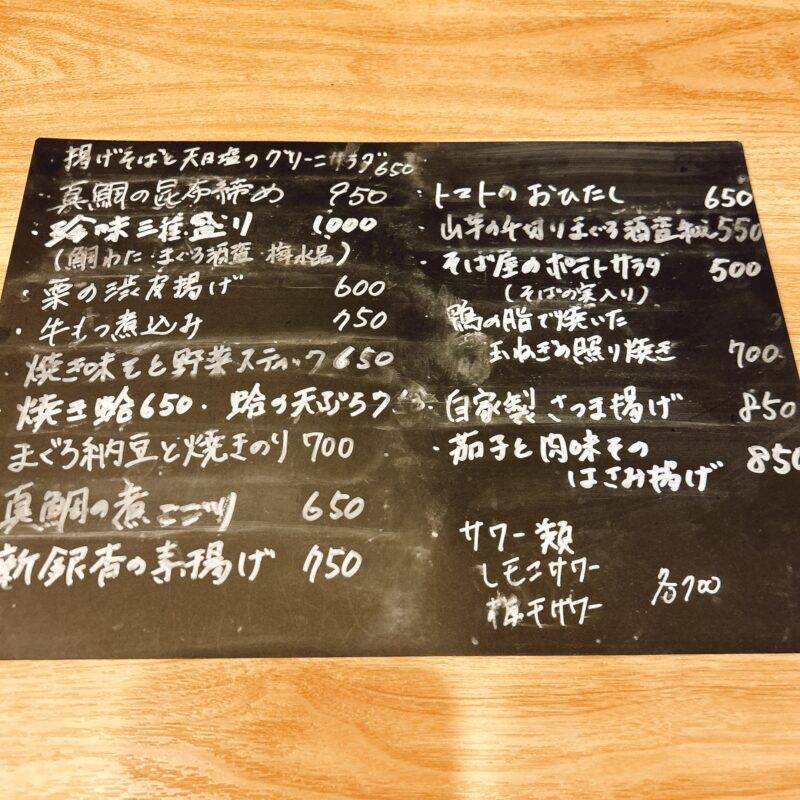 ・揚げそばと天日塩のグリーンサラダ 650
・真鯛の昆布締め 950
・珍味三種盛り 1000
(鯛わた・まぐろ酒盗・梅水晶)
・栗の渋皮揚げ 600
・牛もつ煮込み 750
・焼き味そと野菜スティック 650
・焼き蛤 650・蛤の天ぷら
まぐろ納豆と焼きのり 700
真鯛の煮こごり 650
新銀杏の素揚げ 750
・トマトのおひたし 650
・山芋の千切りまぐろ酒盗和え 550
・そば屋のポテトサラダ 500
(そばの実入り)
鴨の脂で焼いた
玉ねぎの照り焼き 700
・自家製さつま揚げ 850
・茄子と肉味その
はさみ揚げ 850
サワー類
レモンサワー
梅干サワー 各700